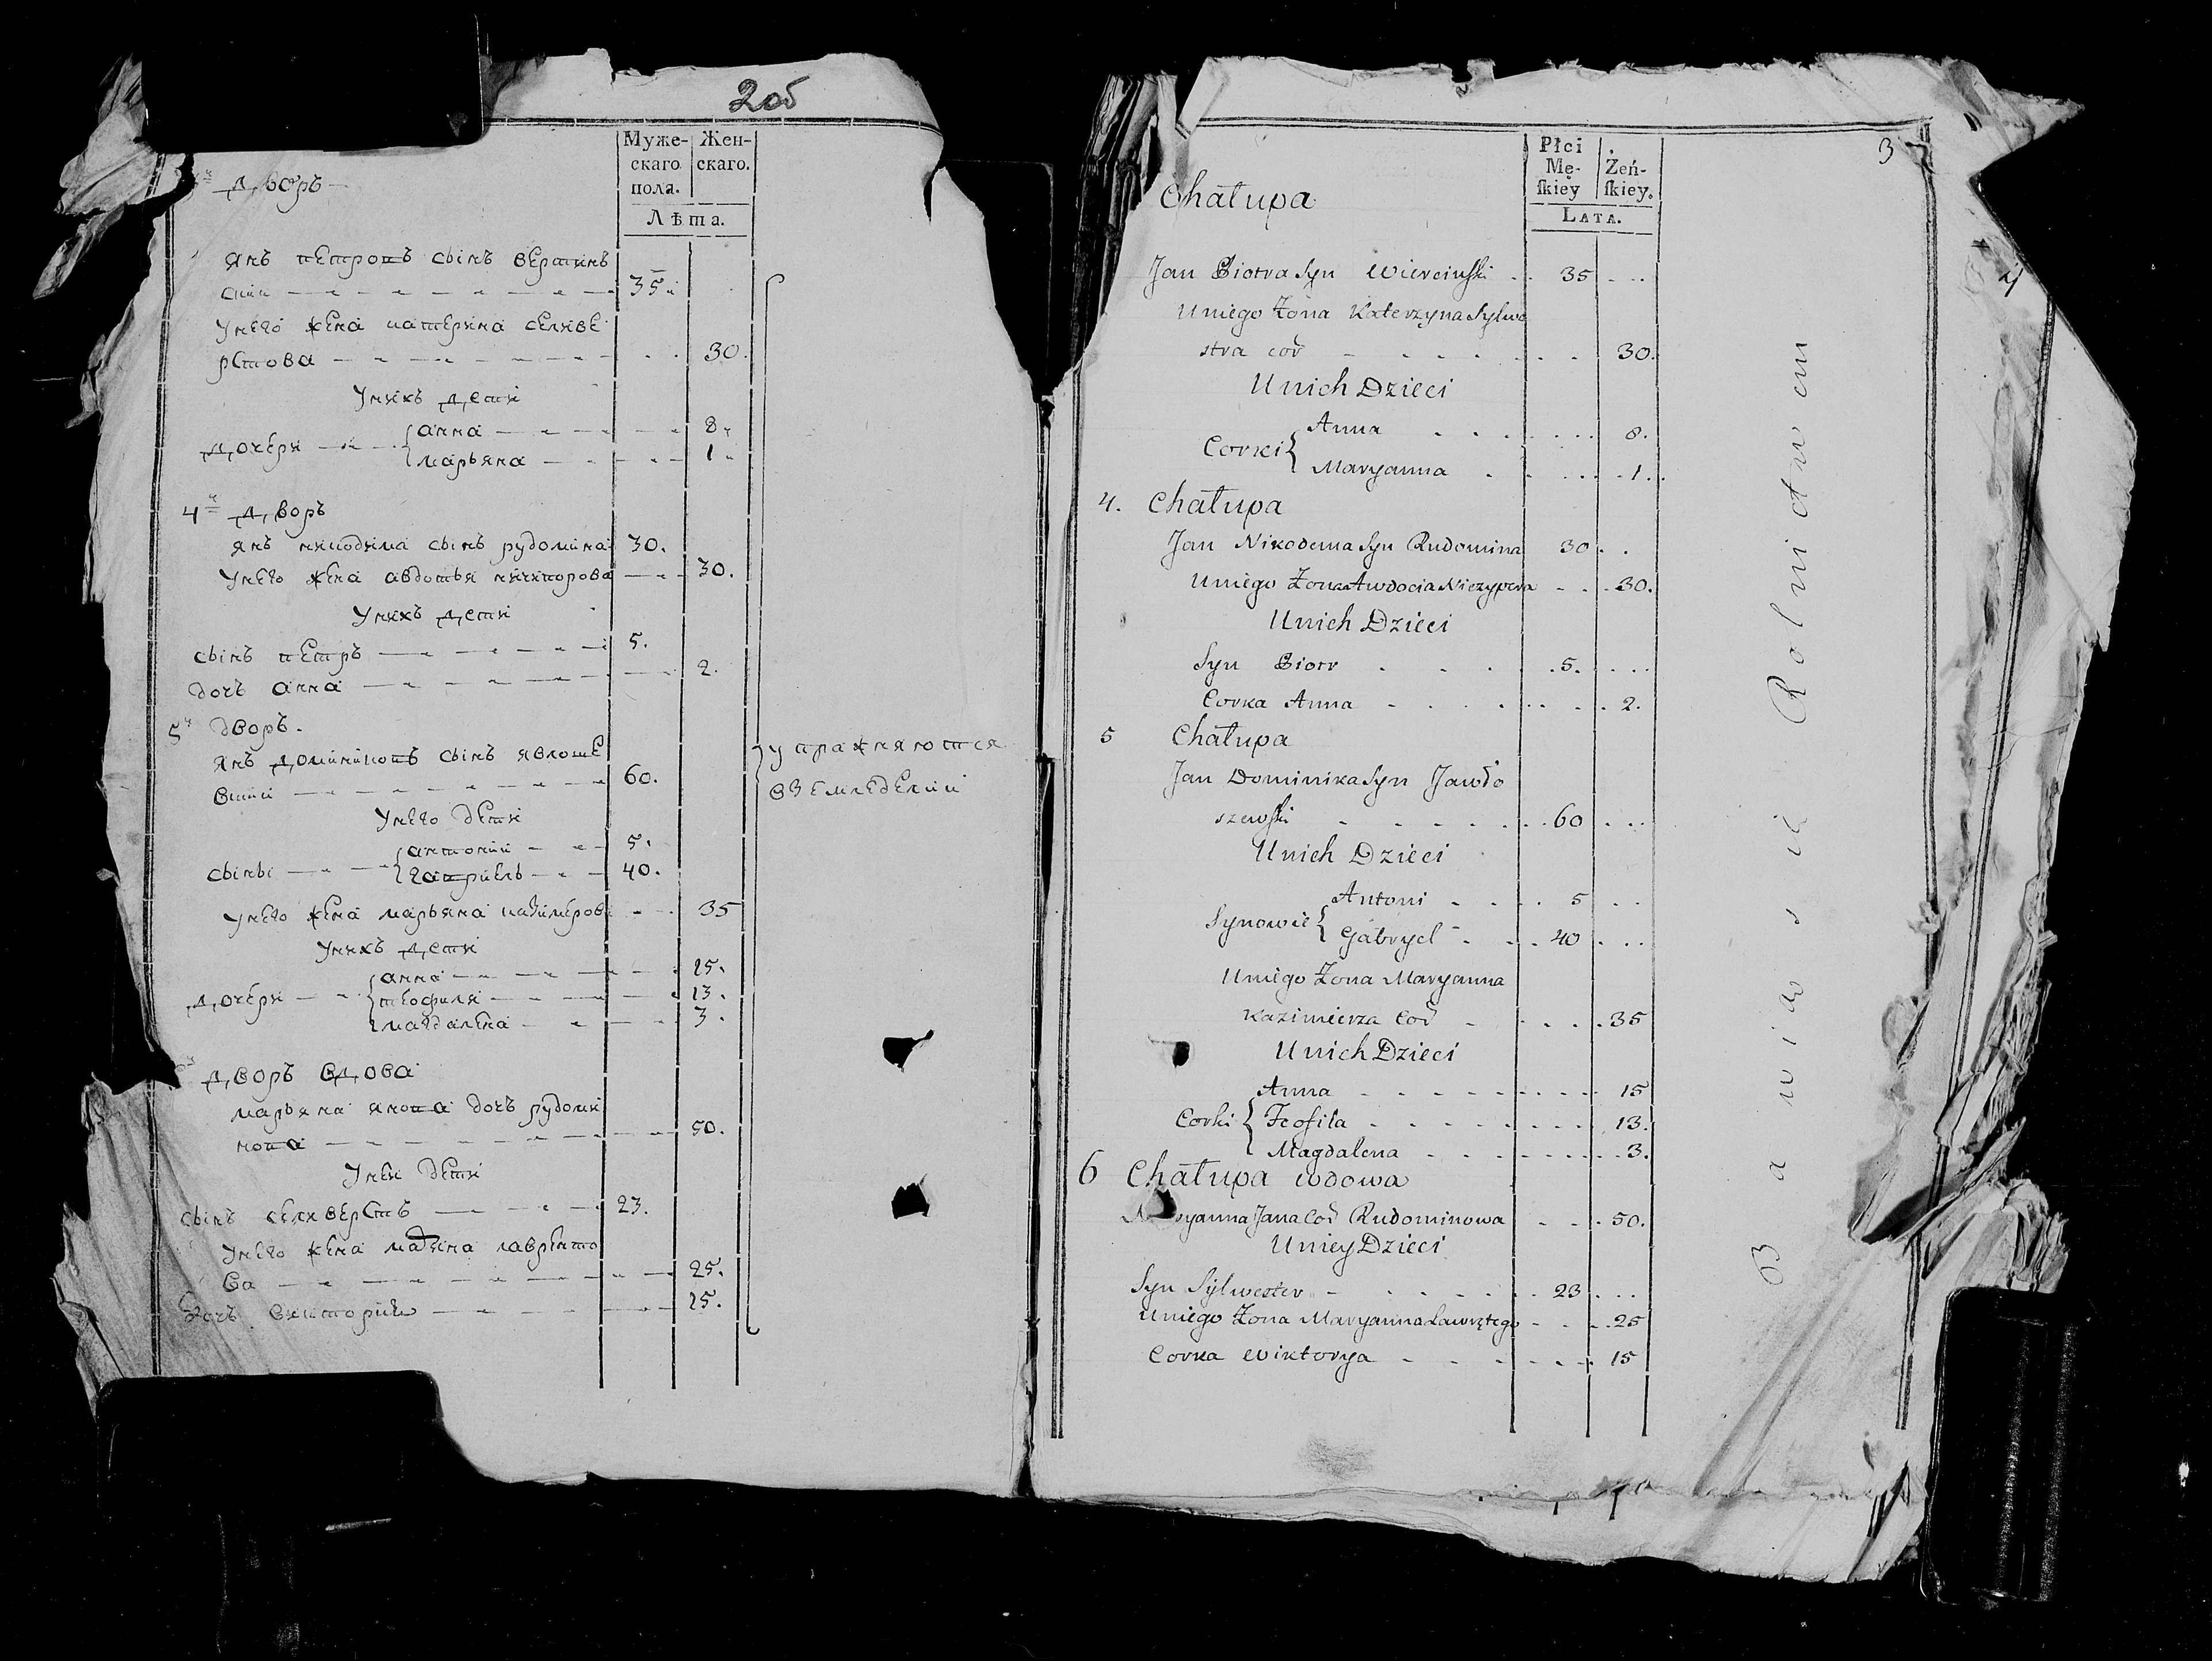 2об
Муже-
скаго
пола.
Жен-
скаго.
Лѣта.
дворъ
янъ петровъ сынъ верцинъ
ский 35
у него жена катерина селиве
рстова 30.
у нихъ дети
дочери { анна 8
марьяна 1
4й дворъ
янъ никодима сынъ рудомина 30.
у него жена авдотья ничипорова 30.
у нихъ дети
сынъ петръ 5.
дочь анна 2.
5й дворъ.
янъ доминиковъ сынъ явлоше
вский 60.
у него дети
сыны { антоний 5.
гаприель 40.
у него жена марьяна казимерова 35
у нихъ дети
дочери { анна 15.
теофиля 13.
магдалена 3.
дворъ вдова
марьяна янова дочь рудоми
нова 50.
у неи дети
сынъ селиверстъ 23.
у него жена
лавренто
ва 25.
дочь виктория 15.
упражняются
вземледелии
3
4
Płci
Mę-
ſkiéy
Żeń-
ſkiey.
Lata.
Chałupa
Jan Piotra Syn Wierciński 35
U niego Żona Katerzyna Sylwe
stra cor 30.
U nich Dzieci
Corki { Anna 8.
Maryanna 1.
4. Chałupa
Jan Nikodema Syn Rudomina 30
U niego Żona Awdocia Niczypora 30.
U nich Dzieci
Syn Piotr 5.
Corka Anna 2.
5 Chałupa
Jan Dominika Syn Jawło
szewski 60
U nich Dzieci
Synowie { Antoni 5
Gabryel 40
U niego Żona Maryanna
Kazimierza Cor 35
U nich Dzieci
Corki { Anna 15
Teofila 13.
Magdalena 3.
6 Chałupa wdowa
Maryanna Jana Cor Rudominowa 50.
U niey Dzieci
Syn Sylwester 23
U niego Żona Maryanna Lawrętego 25
Corka Wiktorya 15
Bawią się Rolnictwem